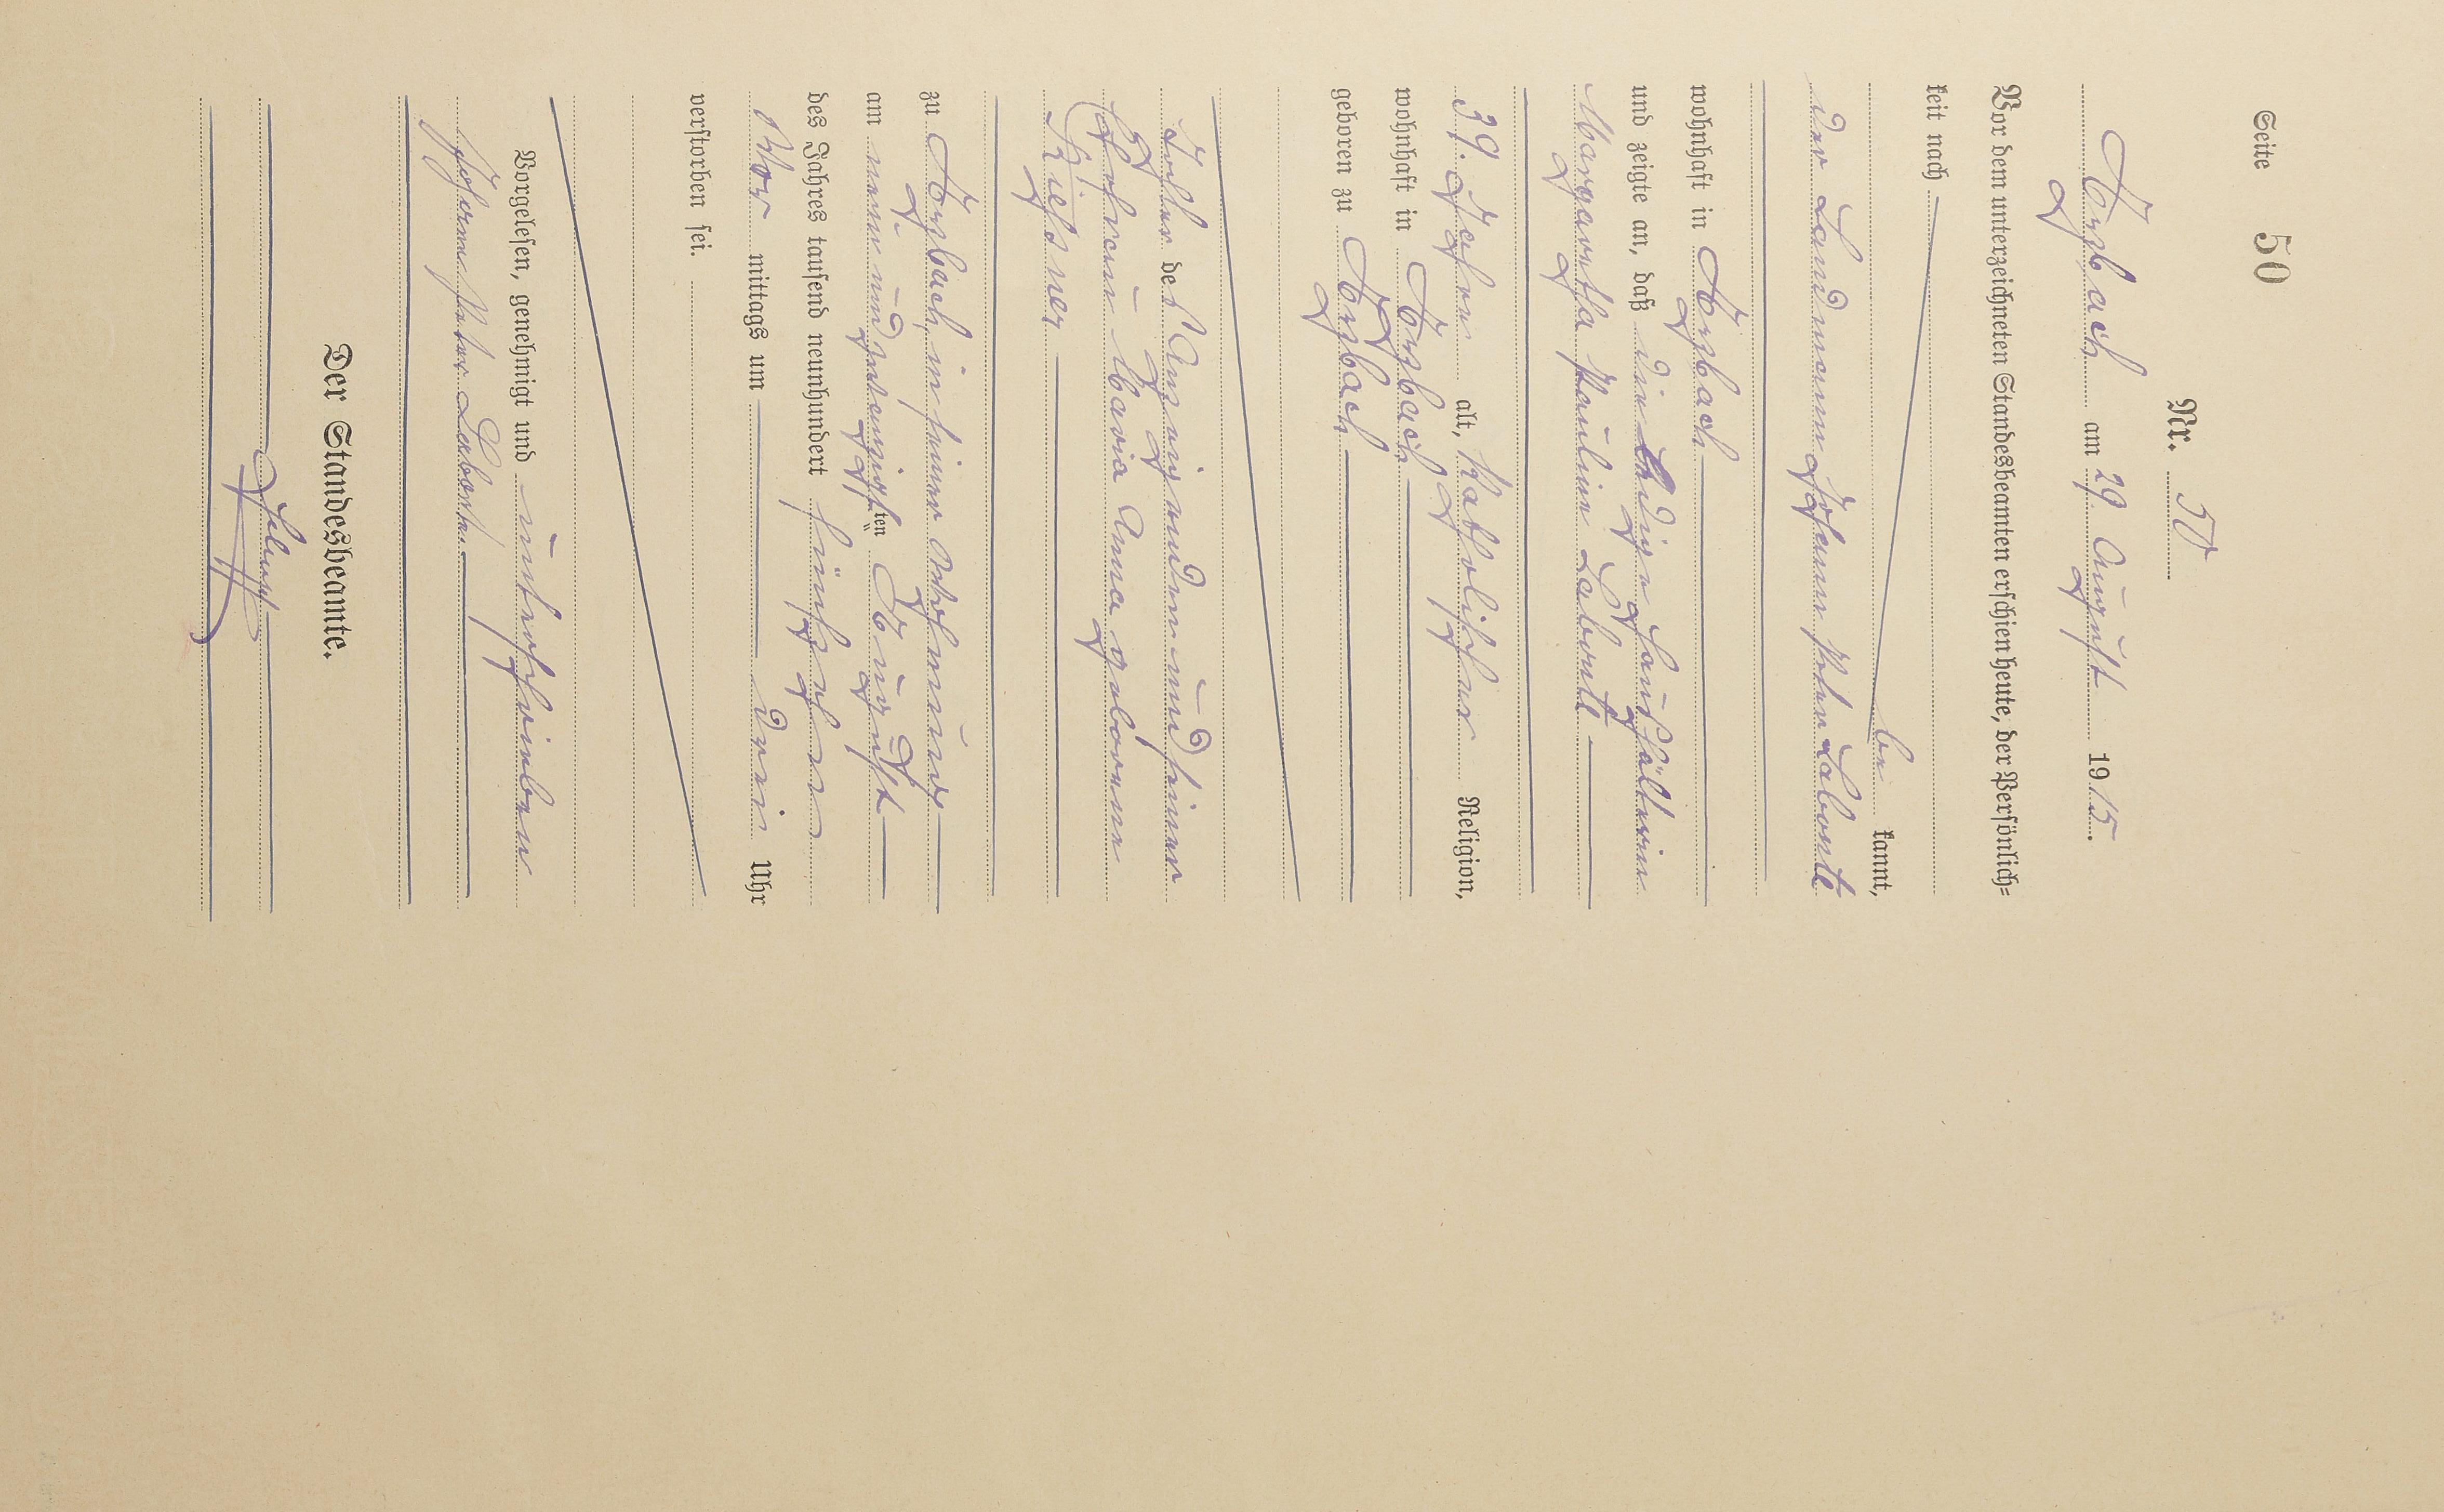 Seite 50
Nr. 50
Hörbach am 29. August 1915.
Vor dem unterzeichneten Standesbeamten erschien heute, der Persönlich=
keit nach
be kannt,
der Landmann Johann Peter Laborte
wohnhaft in
und zeigte an, daß die ledige Haushälterin
Margaretha Pauline Laborte
39. Jahre alt, katholischer Religion,
wohnhaft in
geboren zu
Tochter des und seiner
Ehefrau Maria Anna geborene
zu in seiner Wohnung
am neunundzwanzigsten ten August
des Jahres tausend neunhundert fünfzehn
Vor mittags um drei Uhr
verstorben sei.
Vorgelesen, genehmigt und unterschrieben
Johann Peter Laborte.
Der Standesbeamte.